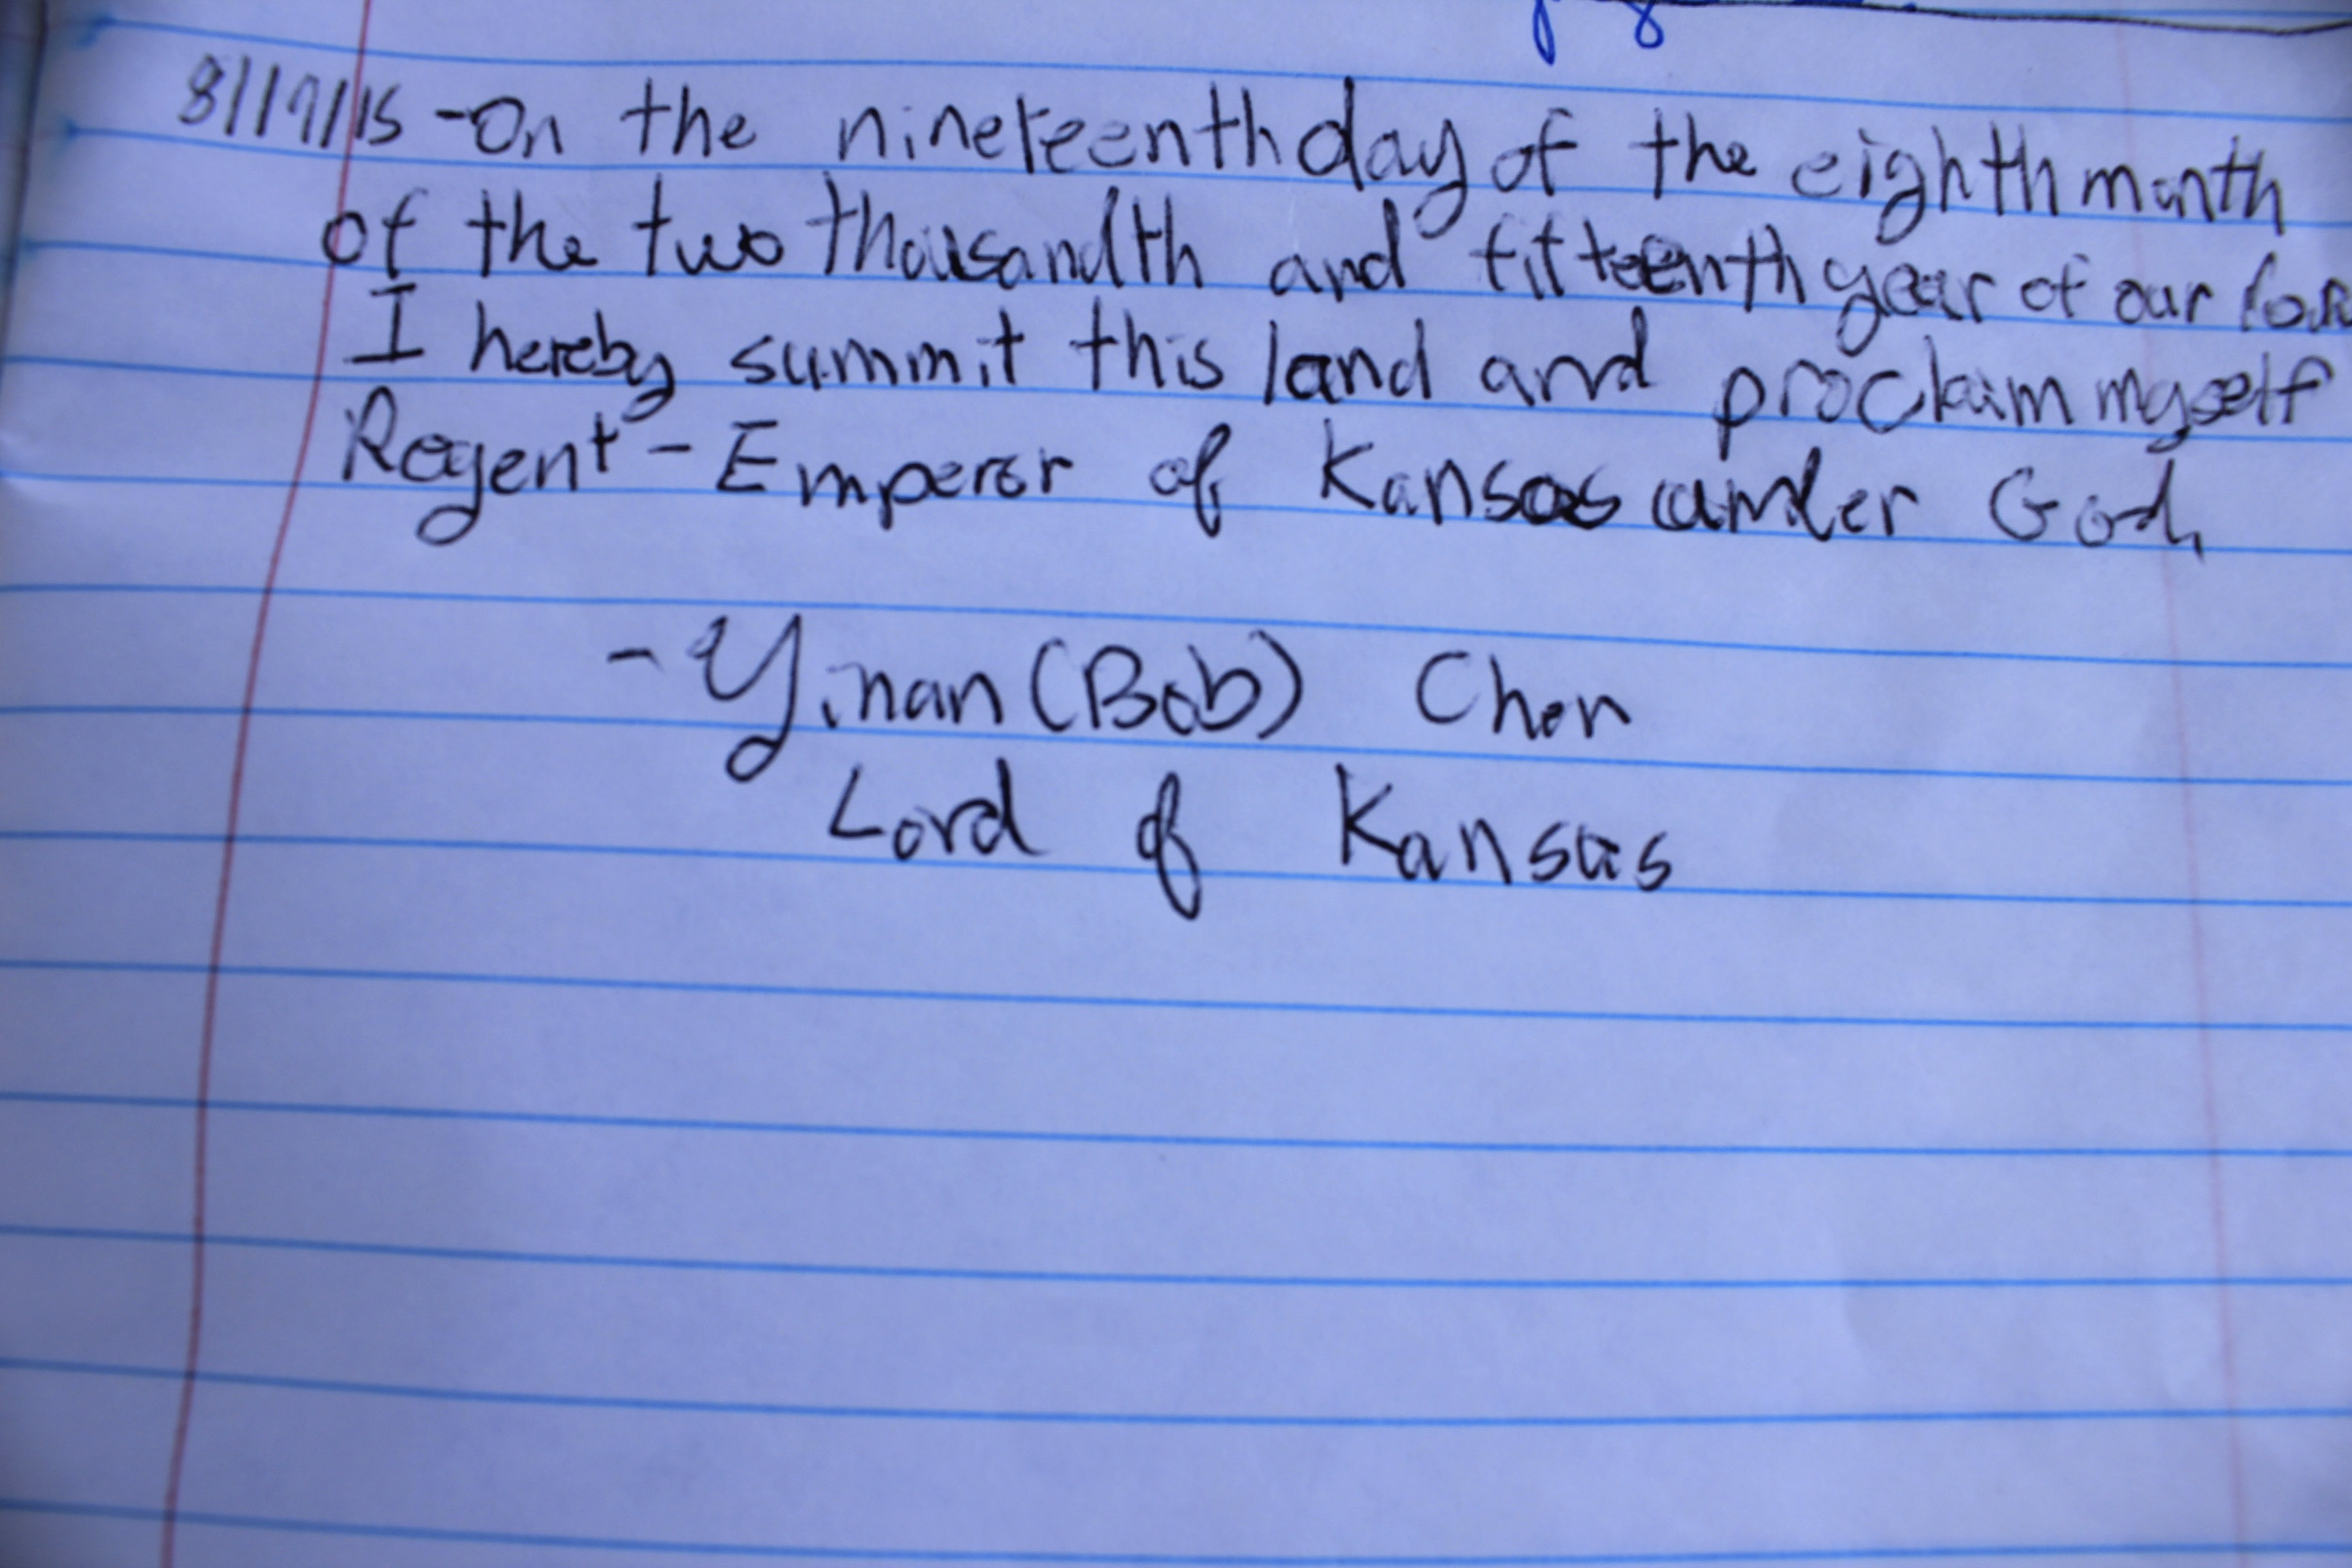 8/19/15 - On the nineteenth day of the eighth month
of the two thousandth and fifteenth year of our
I hereby summit this land and proclaim myself
Regent - Emperor of Kansas under God,
- Yinan (Bob) Chen
Lord of Kansas